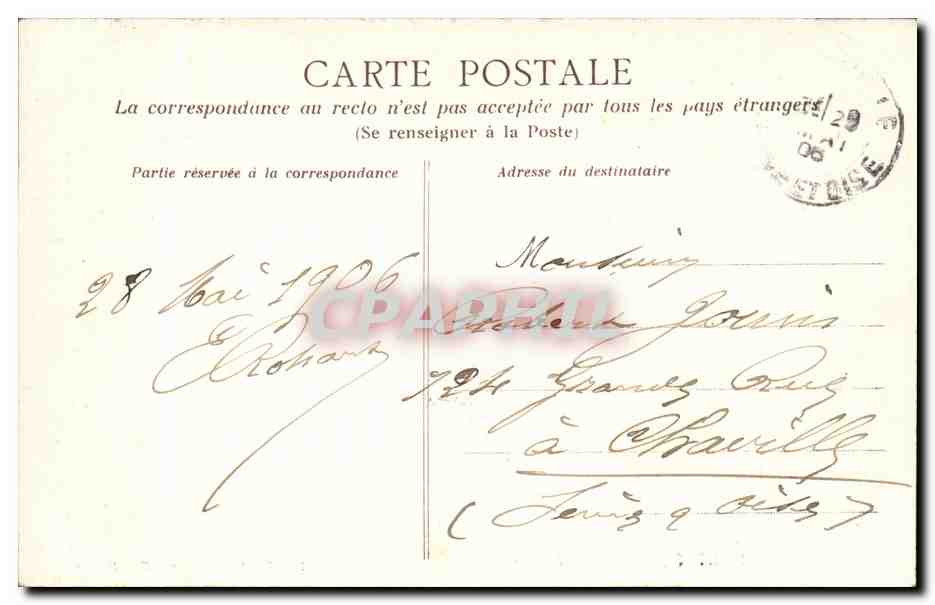 CARTE POSTALE
La correspondance au recto n'est pas acceptée par tous les pays étrangers
(Se renseigner à la Poste)
29
06
ET OISE
Partie réservée à la correspondance
Adresse du destinataire
28 Mai 1906
E Rohart
Monsieur
Robert Jouin
124 Grande Rue
à Chaville
(Seine & Oise)
CPAPHIL